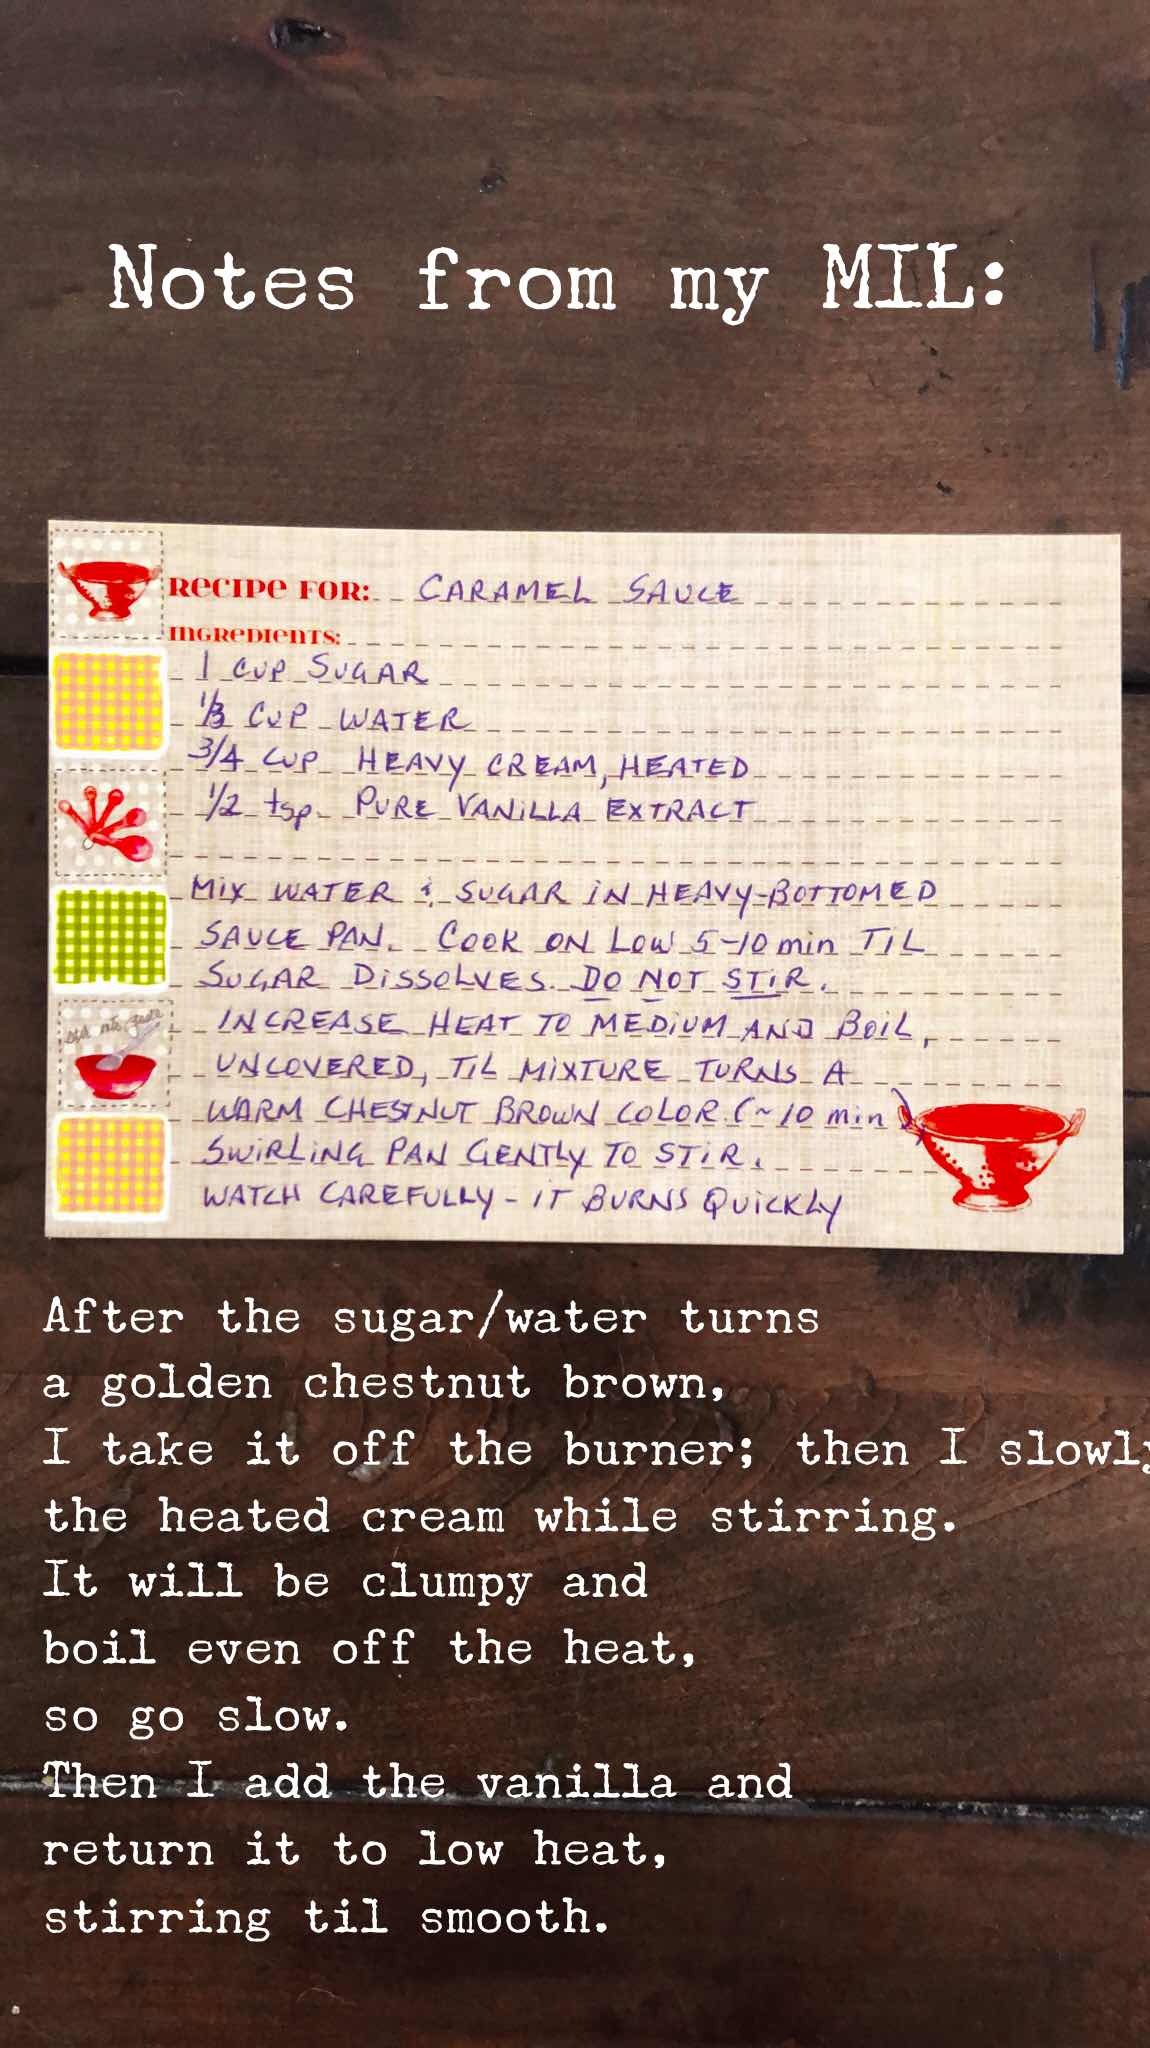 Notes from my MIL:
Recipe for: CARAMEL SAUCE
Ingredients:
1 CUP SUGAR
1/3 CUP WATER
3/4 CUP HEAVY CREAM, HEATED
1/2 tsp. PURE VANILLA EXTRACT
MIX WATER & SUGAR IN HEAVY-BOTTOMED
SAUCE PAN. COOK ON LOW 5-10 min TIL
SUGAR DISSOLVES. DO NOT STIR.
INCREASE HEAT TO MEDIUM AND BOIL,
UNCOVERED, TIL MIXTURE TURNS A
WARM CHESTNUT BROWN COLOR (~10 min)
SWIRLING PAN GENTLY TO STIR.
WATCH CAREFULLY - IT BURNS QUICKLY
After the sugar/water turns
a golden chestnut brown,
I take it off the burner; then I slowly
the heated cream while stirring.
It will be clumpy and
boil even off the heat,
so go slow.
Then I add the vanilla and
return it to low heat,
stirring til smooth.